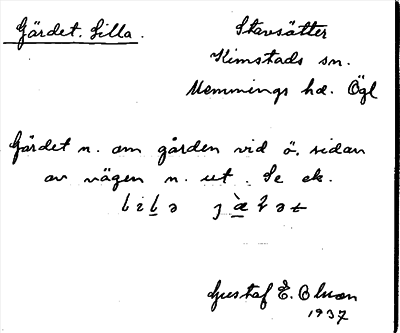 Gärdet. Lilla.
Stavsätter
Kimstads sn.
Memmings hd. Ögl
Gärdet n. om gården vid ö. sidan
av vägen n. ut. Se ek.
Gustaf E. Olsson
1937